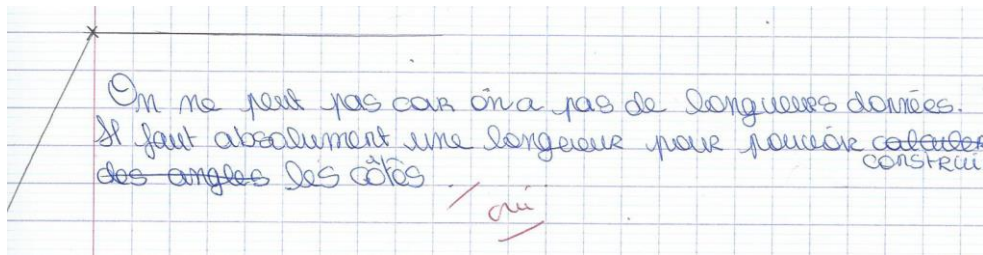 On ne peut pas car on a pas de longueurs données.
Il faut absolument une longueur pour pouvoir calculer
construi
des angles les côtés
oui